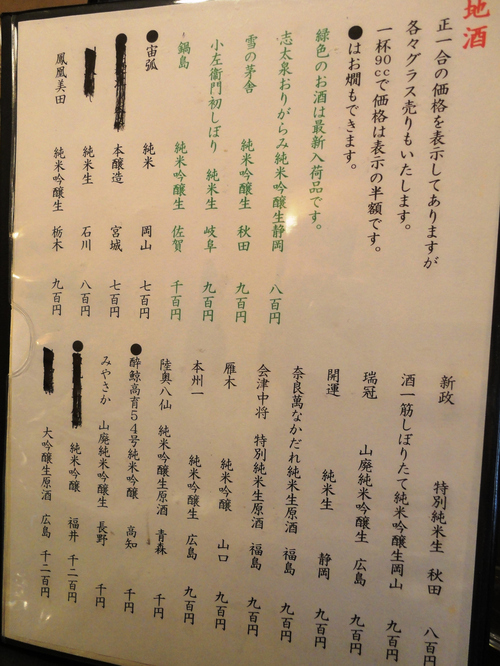 地酒
正一合の価格を表示してありますが
各々グラス売りもいたします。
一杯90ccで価格は表示の半額です。
●はお燗もできます。
緑色のお酒は最新入荷品です。
志太泉おりがらみ純米吟醸生静岡 八百円
雪の茅舎 純米吟醸生 秋田 九百円
小左衛門初しぼり 純米生 岐阜 九百円
鍋島 純米吟醸生 佐賀 千百円
●宙狐 純米 岡山 七百円
● 本醸造 宮城 七百円
純米生 石川 八百円
鳳凰美田 純米吟醸生 栃木 九百円
新政 特別純米生 秋田 八百円
酒一筋しぼりたて純米吟醸生岡山 九百円
瑞冠 山廃純米吟醸生 広島 九百円
開運 純米生 静岡 九百円
奈良萬なかだれ純米生原酒 福島 九百円
会津中将 特別純米生原酒 福島 九百円
雁木 純米吟醸 山口 九百円
本州一 純米吟醸生 広島 九百円
陸奥八仙 純米吟醸生原酒 青森 千円
●酔鯨高育54号純米吟醸 高知 千円
みやさか 山廃純米吟醸生 長野 千円
● 純米吟醸 福井 千二百円
大吟醸生原酒 広島 千二百円